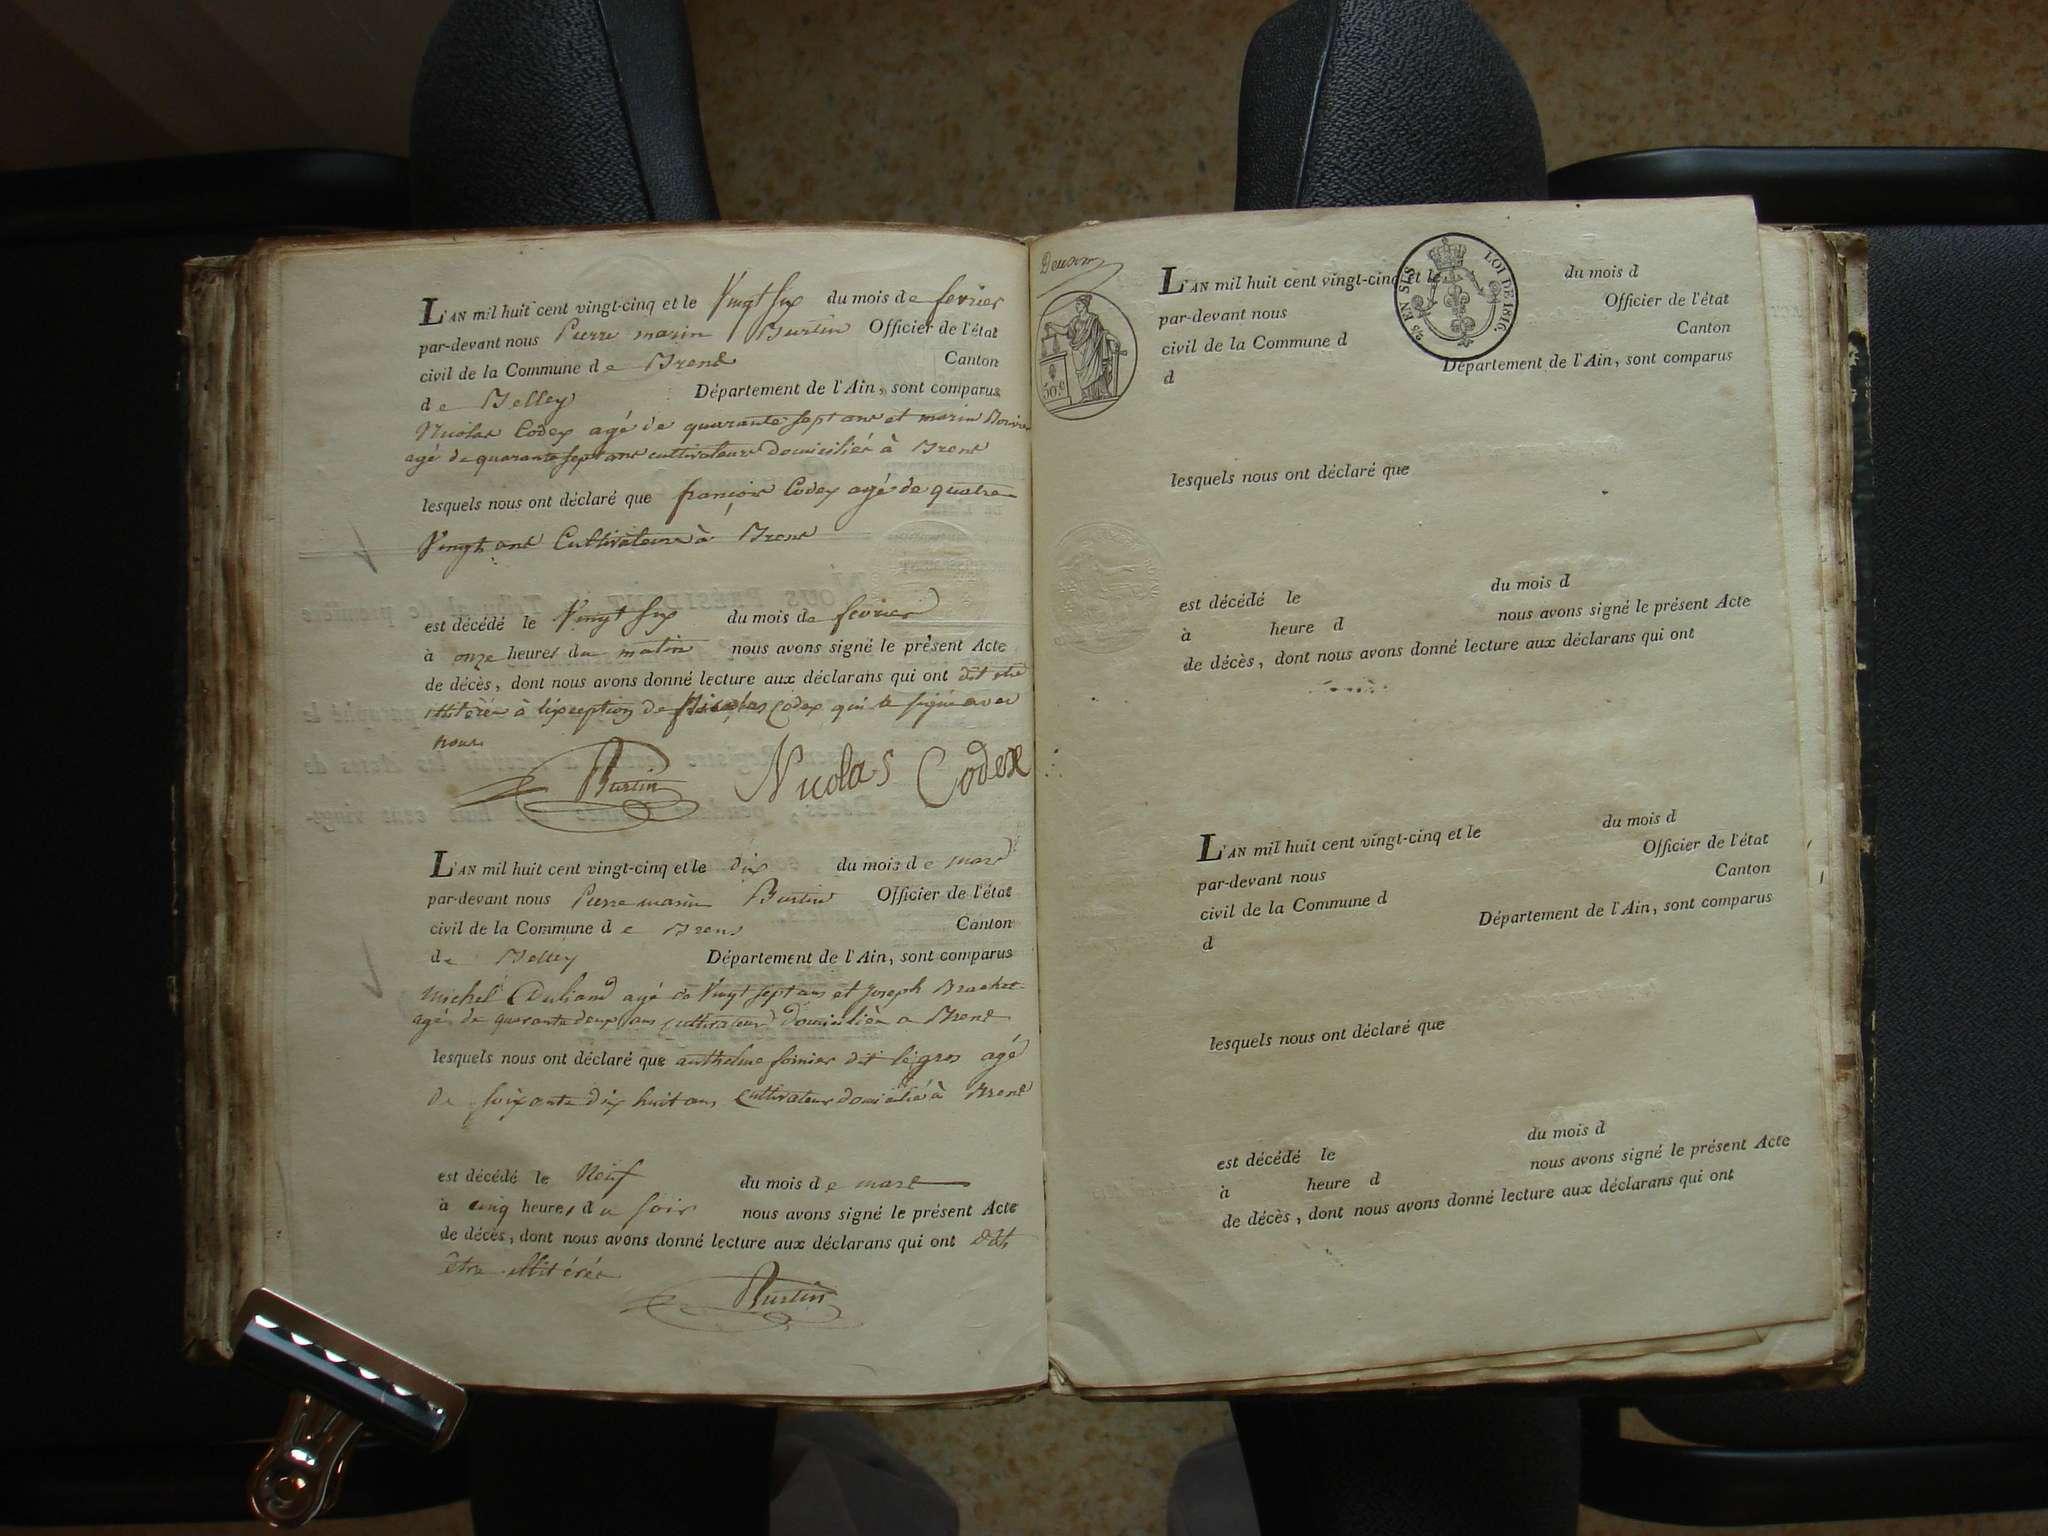 L'AN mil huit cent vingt-cinq et le Vingt Six du mois de fevrier
par-devant nous Pierre marin Burtin Officier de l'état
civil de la Commune de Brens Canton
de Belley Département de l'Ain, sont comparus
Nicolas Codex agé de quarante sept ans et marin
agé de quarante sept ans cultivateurs domiciliés à Brens
lesquels nous ont déclaré que françois Codex agé de quatre
Vingt ans Cultivateur à Brens
est décédé le Vingt Six du mois de fevrier
à onze heures du matin nous avons signé le présent Acte
de décès, dont nous avons donné lecture aux déclarans qui ont dit etre
à l'exception de Nicolas Codex qui a signé avec
nous
Burtin Nicolas Codex
L'AN mil huit cent vingt-cinq et le dix du mois de mars
par-devant nous Pierre marin Burtin Officier de l'état
civil de la Commune de Brens Canton
de Belley Département de l'Ain, sont comparus
Michel agé de Vingt sept ans et Joseph Brachet
agé de quarante deux ans cultivateurs domiciliés a Brens
lesquels nous ont déclaré que anthelme fornier dit legros agé
de soixante dix huit ans cultivateur domicilié à Brens
est décédé le Neuf du mois de mars
à cinq heures du soir nous avons signé le présent Acte
de décès, dont nous avons donné lecture aux déclarans qui ont dit
etre illitérés
Burtin
50 c
2/5 EN SUS LOI DE 1816.
L'AN mil huit cent vingt-cinq et le du mois d
par-devant nous Officier de l'état
civil de la Commune d Canton
d Département de l'Ain, sont comparus
lesquels nous ont déclaré que
est décédé le du mois d
à heure d nous avons signé le présent Acte
de décès, dont nous avons donné lecture aux déclarans qui ont
L'AN mil huit cent vingt-cinq et le du mois d
par-devant nous Officier de l'état
civil de la Commune d Canton
d Département de l'Ain, sont comparus
lesquels nous ont déclaré que
est décédé le du mois d
à heure d nous avons signé le présent Acte
de décès, dont nous avons donné lecture aux déclarans qui ont